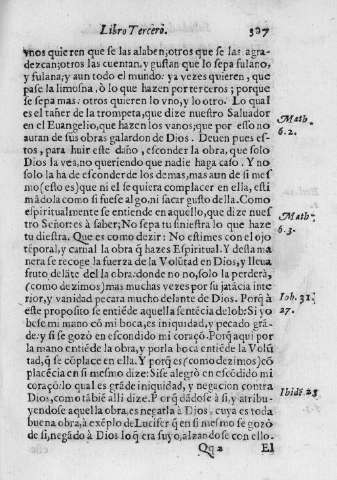 Libro Tercero. 327
vnos quieren que se las alaben; otros que se las agra-
dezcan; otros las cuentan, y gustan que lo sepa fulano,
y fulana; y aun todo el mundo: ya vezes quieren, que
pase la limosna, ò lo que hazen por terceros; porque
se sepa mas: otros quieren lo vno, y lo otro. Lo qual
es el tañer de la trompeta, que dize nuestro Saluador
en el Euangelio, que hazen los vanos; que por esso no
auran de sus obras galardon de Dios. Deuen pues es-
tos, para huir este daño, esconder la obra, que solo
Dios la vea, no queriendo que nadie haga caso. Y no
solo la ha de esconder de los demas, mas aun de si mes
mo (esto es) que ni el se quiera complacer en ella, esti
mãdola como si fuese algo, ni sacar gusto della. Como
espiritualmente se entiende en aquello, que dize nues
tro Señor: es à saber; No sepa tu siniestra lo que haze
tu diestra. Que es como dezir: No estimes con el ojo
tẽporal, y carnal la obra q̃ hazes Espiritual. Y desta ma
nera se recoge la fuerza de la Volũtad en Dios, y lleua
fruto delãte del la obra: donde no no, solo la perderà,
(como dezimos) mas muchas vezes por su jatãcia inte
rior, y vanidad pecara mucho delante de Dios. Porq̃ à
este proposito se entiẽde aquella sentẽcia de Iob: Si yo
bese mi mano cõ mi boca, es iniquidad, y pecado grã-
de: y si se gozò en escondido mi coraçõ. Porq̃ aqui por
la mano entiẽde la obra, y por la boca entiẽde la Volũ
tad, q̃ se cõplace en ella. Y porq̃ es (como dezimos) cõ
placẽcia en si mesmo dize: Si se alegrò en escõdido mi
coraçõ: lo qual es grãde iniquidad, y negacion contra
Dios, como tãbiẽ alli dize. Porq̃ dãdose à si, y atribu-
yendose aquella obra, es negarla à Dios, cuya es toda
buena obra, à exẽplo de Lucifer q̃ en si mesmo se gozò
de si, negãdo à Dios lo q̃ era suyo, alzandose con ello.
Qq 2 El
Math.
6. 2.
Math.
6. 3.
Iob. 31.
27.
Ibidẽ. 28